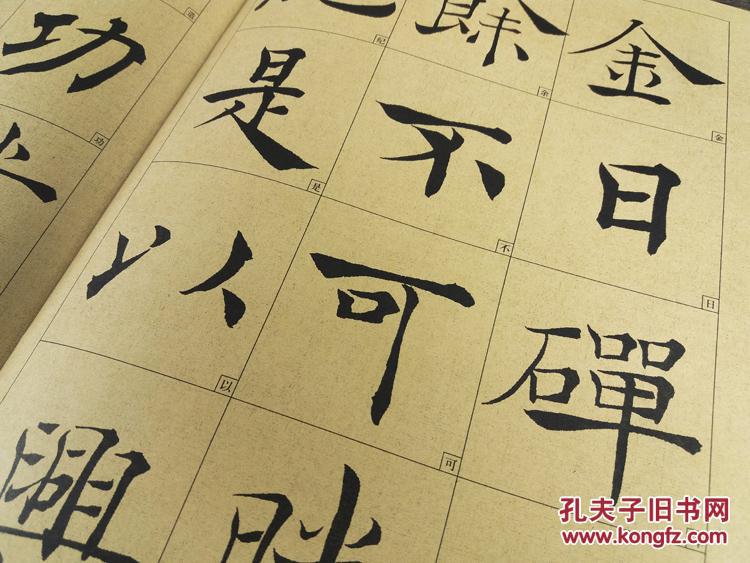 金日磾
金
日
餘不可
余
不
可
是以
紀
是
以
功
功
孔夫子旧书网
www.kongfz.com